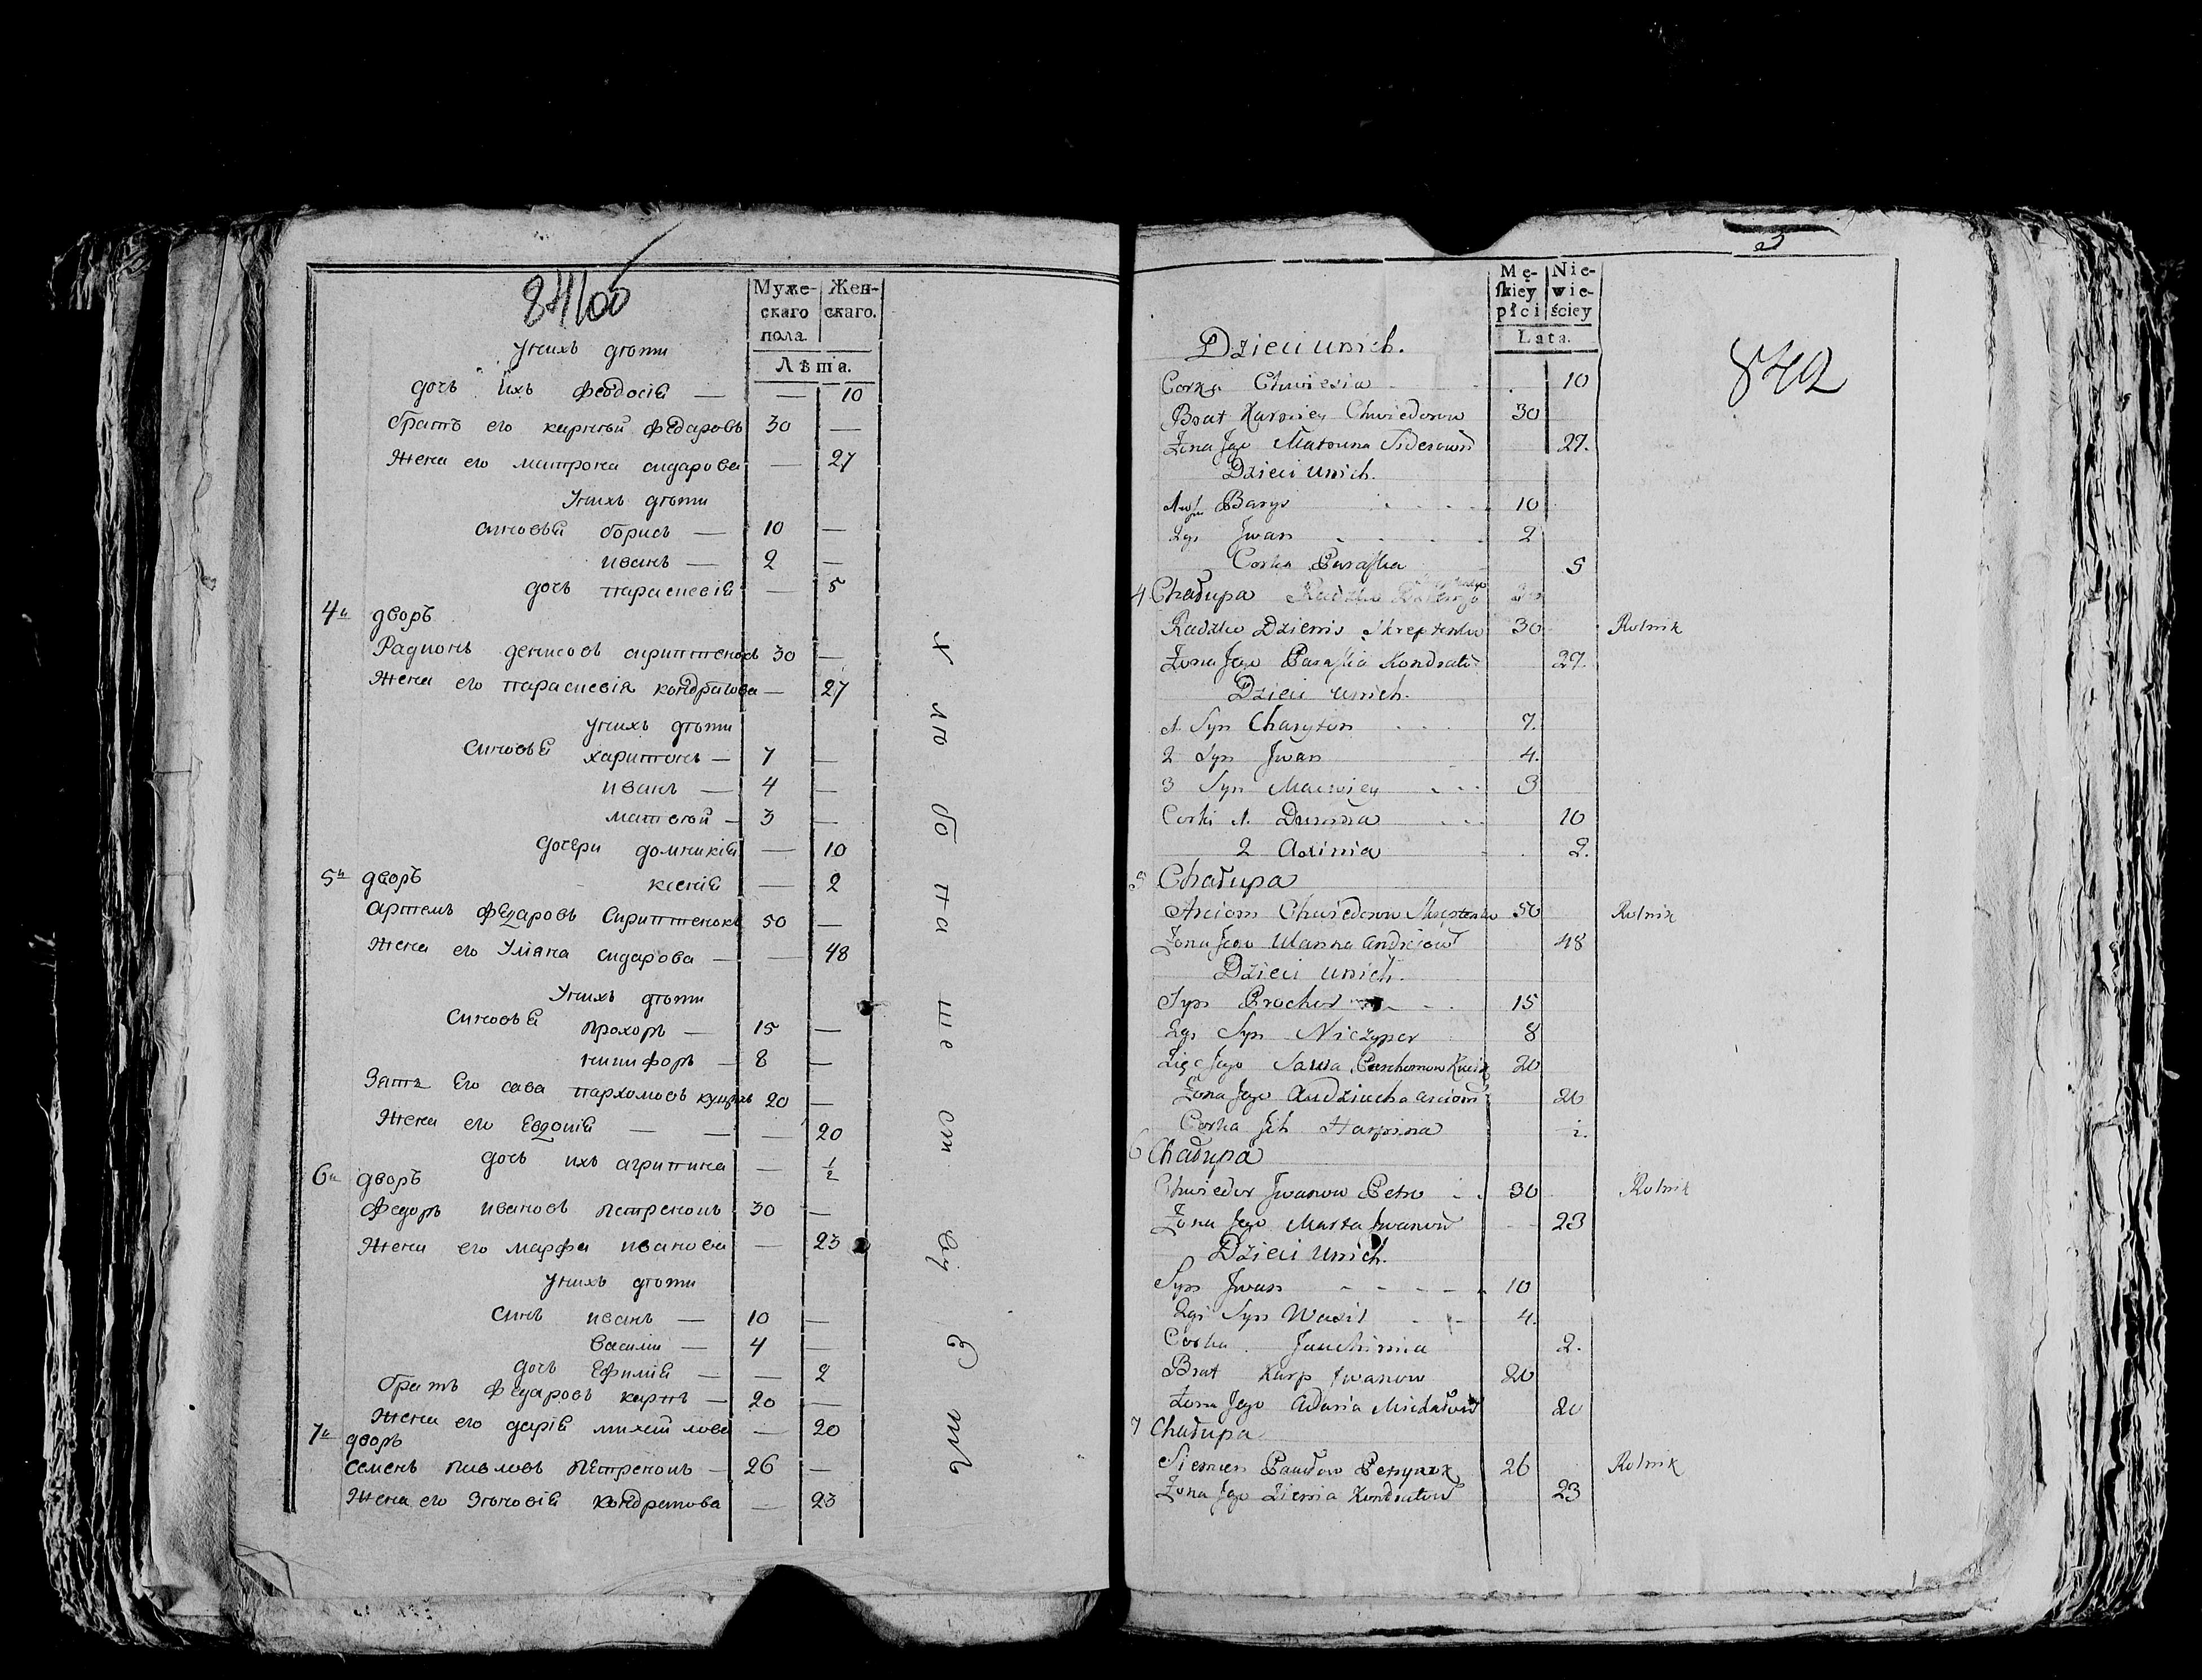 84100
Муже-
скаго
пола.
Жен-
скаго.
Лѣта.
Унихъ дѣти
дочь ихъ феодосія — — 10
братъ его карнѣй федаровъ 30 —
жена его матрона сидарова — 27
Унихъ дѣти
синовья борисъ — 10 —
иванъ — 2 —
дочь параскевія — 5
4й дворъ
Радионъ денисовъ скриптенокъ 30 —
жена его параскевія кондратова — 27
Унихъ дѣти
синовья харитонъ — 7 —
иванъ — 4 —
матвѣй — 3 —
дочери домникія — 10
5й дворъ ксенія — 2
артемъ федаровъ Скриптенокъ 50 —
жена его Уляна сидарова — — 48
Унихъ дѣти
синовья прохоръ — 15 —
никифоръ — 8 —
Зять Его сава пархомовъ 20 —
жена его Евдокія — — — 20
дочь ихъ агрипина — ½
6й дворъ
федоръ ивановъ петренокъ 30 —
жена его марфа иванова — 23
Унихъ дѣти
синъ иванъ — 10 —
василіи — 4 —
дочь Ефимія — — 2
братъ федаровъ карпъ — 20 —
жена его дарія михайлова — 20
7й дворъ
семенъ павловъ петренокъ — 26 —
жена его Зѣновія кондратова — 23
Хлюбпашествуетъ
3
Mę-
skiey
płci
Nie-
wie-
ściey
Lata.
842
Dzieci unich.
Corka Chwiesia 10
Brat Karniey Chwiedorow 30
Zona Jego Matruna Siderown 27.
Dzieci unich.
1szy Barys 10
2gi Jwan 2
Corka Paraska 5
4 Chałupa
Radzko Dzienis Skreptenko 30 Rolnik
Zona Jego Paraska Kondrato 27.
Dzieci unich.
1. Syn Charyton 7.
2 Syn Jwan 4.
3 Syn Maciwiey 3
Corki 1. Dumna 10
2 Axinia 2.
5 Chałupa
Arciom Chwiedorow Skreptenko 50 Rolnik
Zona Jego Ulanna Andrejow 48
Dzieci unich.
Syn Prochor 15
2gi Syn Niczypor 8
Zięc Jego Sawa Parchomow 20
Zona Jego Audziucha Arciom 20
Corka Jch Harpina ½.
6 Chałupa
Chwiedor Jwanow Petro 30 Rolnik
Zona Jego Marta Jwanow 23
Dzieci unich.
Syn Jwan 10
2gi Syn Wasil 4.
Corka Jauchimia 2.
Brat Karp Jwanow 20
Zona Jego Adaria Michałow 20
7 Chałupa
Siemien Pawłow Petrynok 26 Rolnik
Zona Jego Zienia Kondratow 23